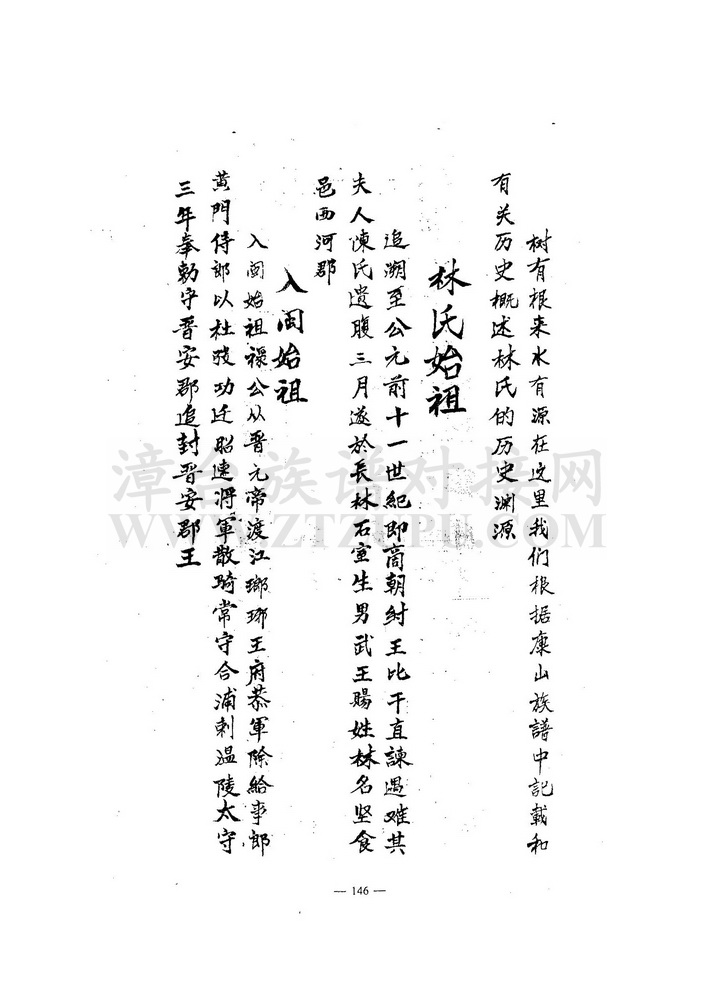 树有根来水有源在这里我们根据康山族譜中記載和
有关历史概述林氏的历史渊源
林氏始祖
追溯至公元前十一世紀即商朝紂王比干直諫遇难其
夫人陳氏遺腹三月遂於長林石室生男武王賜姓林名坚食
邑西河郡
入闽始祖
入闽始祖禄公从晋元帝渡江瑯琊王府恭軍除給事郎
黄門侍郎以杜弢功迁昭速將軍散琦常守合浦刺温陵太守
三年奉勅守晋安郡追封晋安郡王
漳台族谱对接网
WWW.ZTZUPU.COM
— 146 —